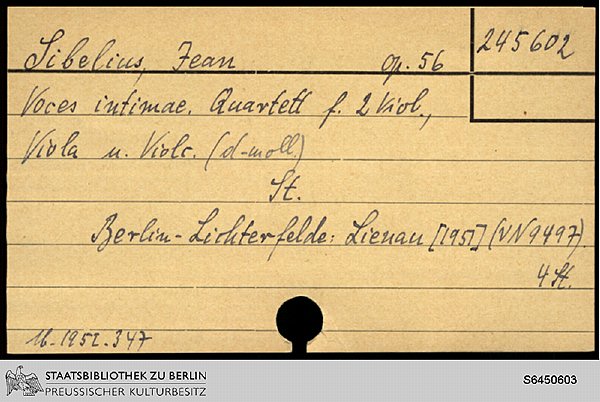 Sibelius, Jean op. 56 245602
Voces intimae. Quartett f. 2 Viol.,
Viola u. Violc. (d-moll)
St.
Berlin-Lichterfelde: Lienau [1951] (VN 9497).
4 St.
M-1952.347
STAATSBIBLIOTHEK ZU BERLIN
PREUSSISCHER KULTURBESITZ
S6450603